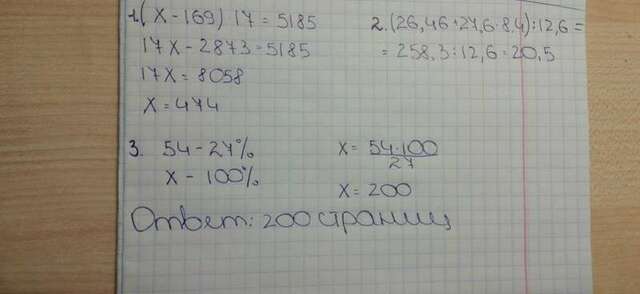 1.(X-169) 17=5185
17X-2873=5185
17X=8058
X=474
2.(26,46+27,6·8,4):12,6=
=258,3:12,6=20,5
3. 54-27%
X-100%
X=54·100/27
X=200
Ответ: 200 страниц